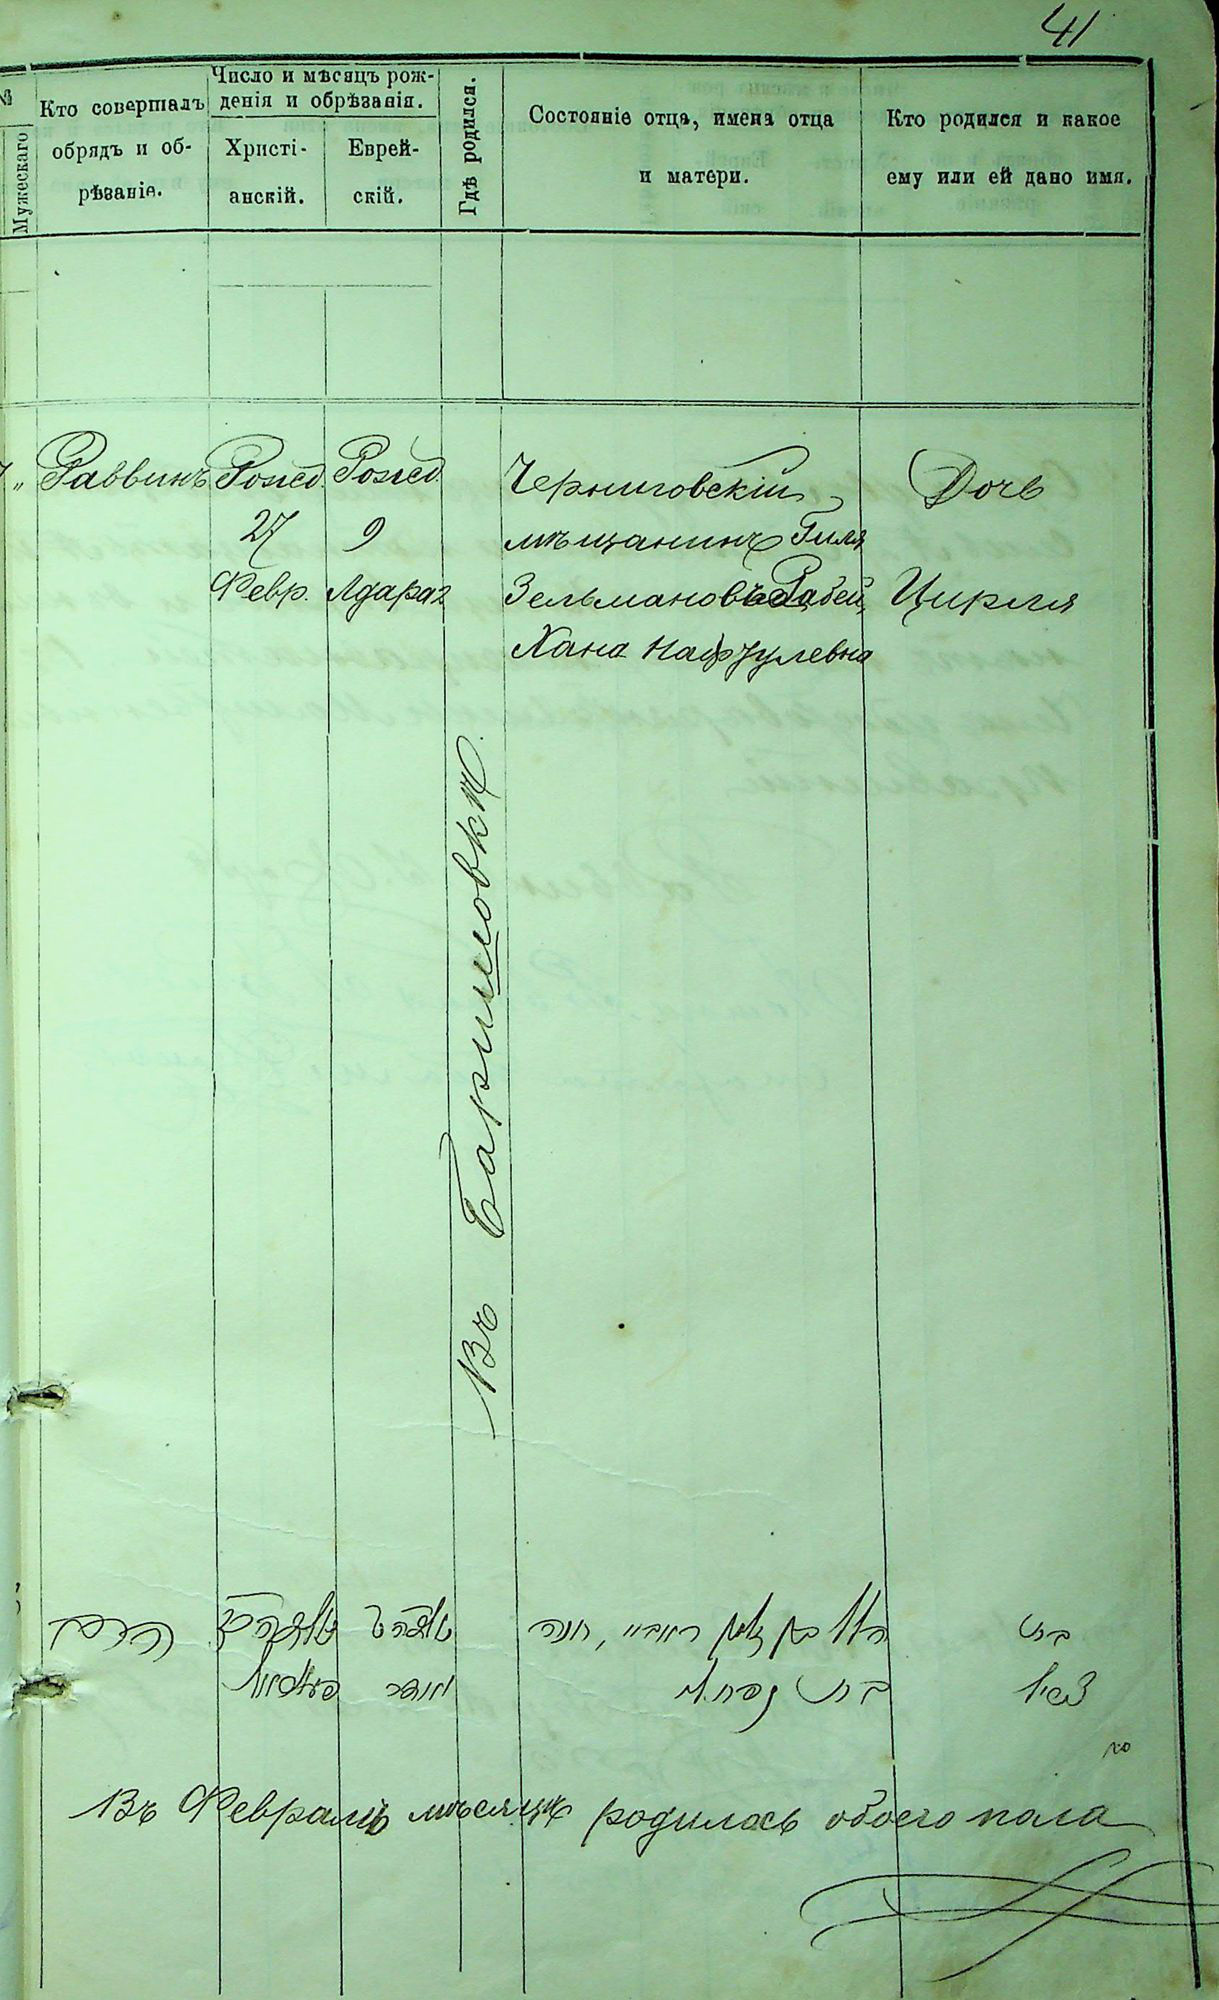 41
№
Мужескаго
Кто совершалъ
обрядъ и об-
рѣзаніе.
Число и мѣсяцъ рож-
денія и обрѣзанія.
Христі-
анскій.
Еврей-
скій.
Гдѣ родился.
Состояніе отца, имена отца
и матери.
Кто родился и какое
ему или ей дано имя.
Раввинъ
Рожед.
27
Февр.
Рожед.
9
Адара 2
Въ Баришовкѣ.
Черниговскій
мѣщанинъ Гиля
Зельмановъ Рабей,
Хана Нафтулевна
Дочь
Цирля
בת
Въ Февралѣ мѣсяцѣ родилось обоего пола